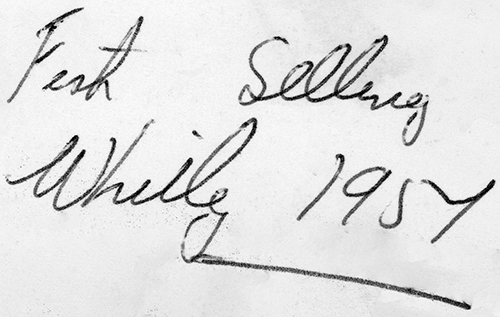 Fest Selling
Whitby 1957